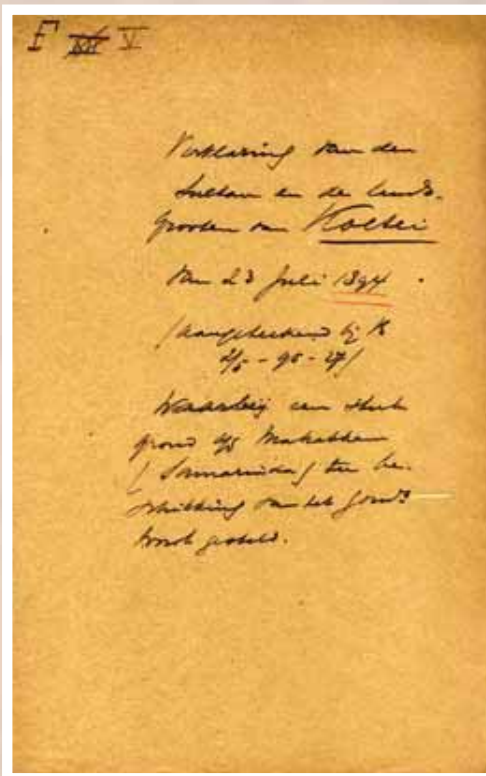 F XII V
Verklaring van den
Sultan en de lands-
grooten van Koetei
van 23 Juli 1894
(Aangeteekend bij
Waarbij een stuk
grond
(Samarinda) ter be-
schikking van het Gouvt
wordt gesteld.